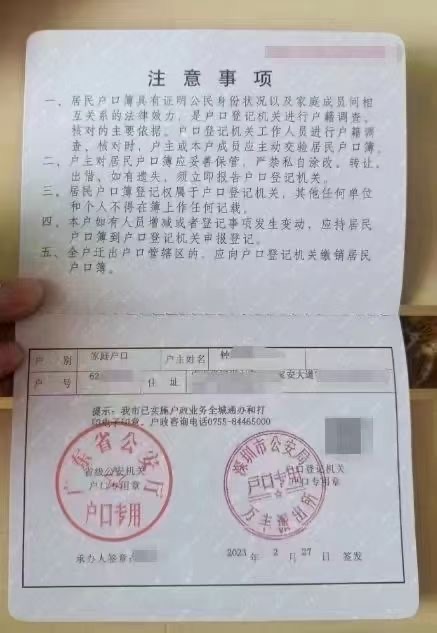 注意事项
一、居民户口簿具有证明公民身份状况以及家庭成员间相
互关系的法律效力，是户口登记机关进行户籍调查、
核对的主要依据。户口登记机关工作人员进行户籍调
查、核对时，户主或本户成员应主动交验居民户口簿。
二、户主对居民户口簿应妥善保管，严禁私自涂改、转让、
出借。如有遗失，须立即报告户口登记机关。
三、居民户口簿登记权属于户口登记机关，其他任何单位
和个人不得在簿上作任何记载。
四、本户如有人员增减或者登记事项发生变动，应持居民
户口簿到户口登记机关申报登记。
五、全户迁出户口管辖区的，应向户口登记机关缴销居民
户口簿。
户别 家庭户口 户主姓名 钟
户号 62 住址 家安大道
提示：我市已实施户政业务全城通办和打
印电子印章，户政咨询电话0755-84465000
广东省公安厅
省级公安机关
户口专用章
户口专用
深圳市公安局
户口登记机关
户口专用章
户口专用
派出所
承办人签章：
2023 年 2 月 27 日 签发